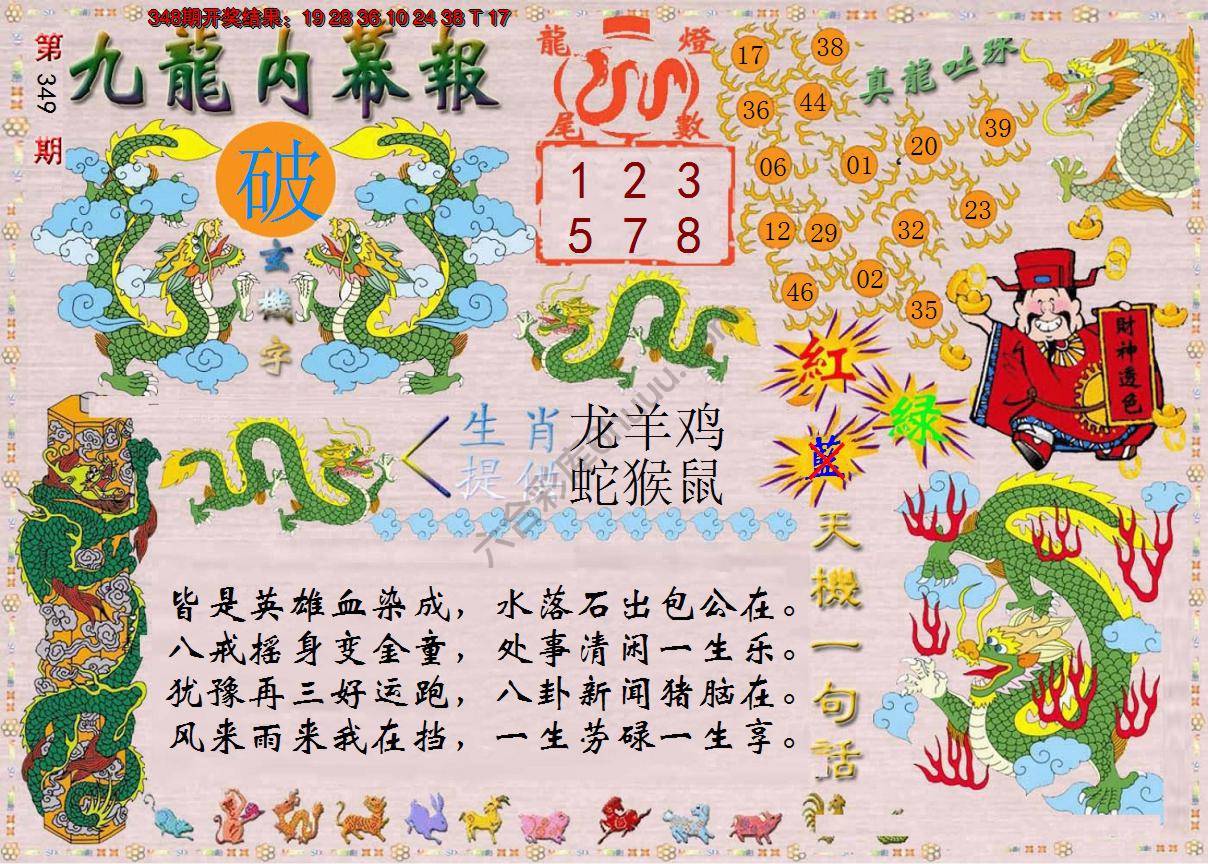 348期开奖结果：19 28 36 10 24 38 T 17
第349期
九龍内幕報
破
玄機字
龍燈
尾數
1 2 3
5 7 8
真龍吐珠
17 38
36 44
39
20
06 01
23
12 29 32
02
46
35
財神透色
紅
綠
藍
生肖 龙羊鸡
提供 蛇猴鼠
天機一句話
皆是英雄血染成，水落石出包公在。
八戒摇身变金童，处事清闲一生乐。
犹豫再三好运跑，八卦新闻猪脑在。
风来雨来我在挡，一生劳碌一生享。